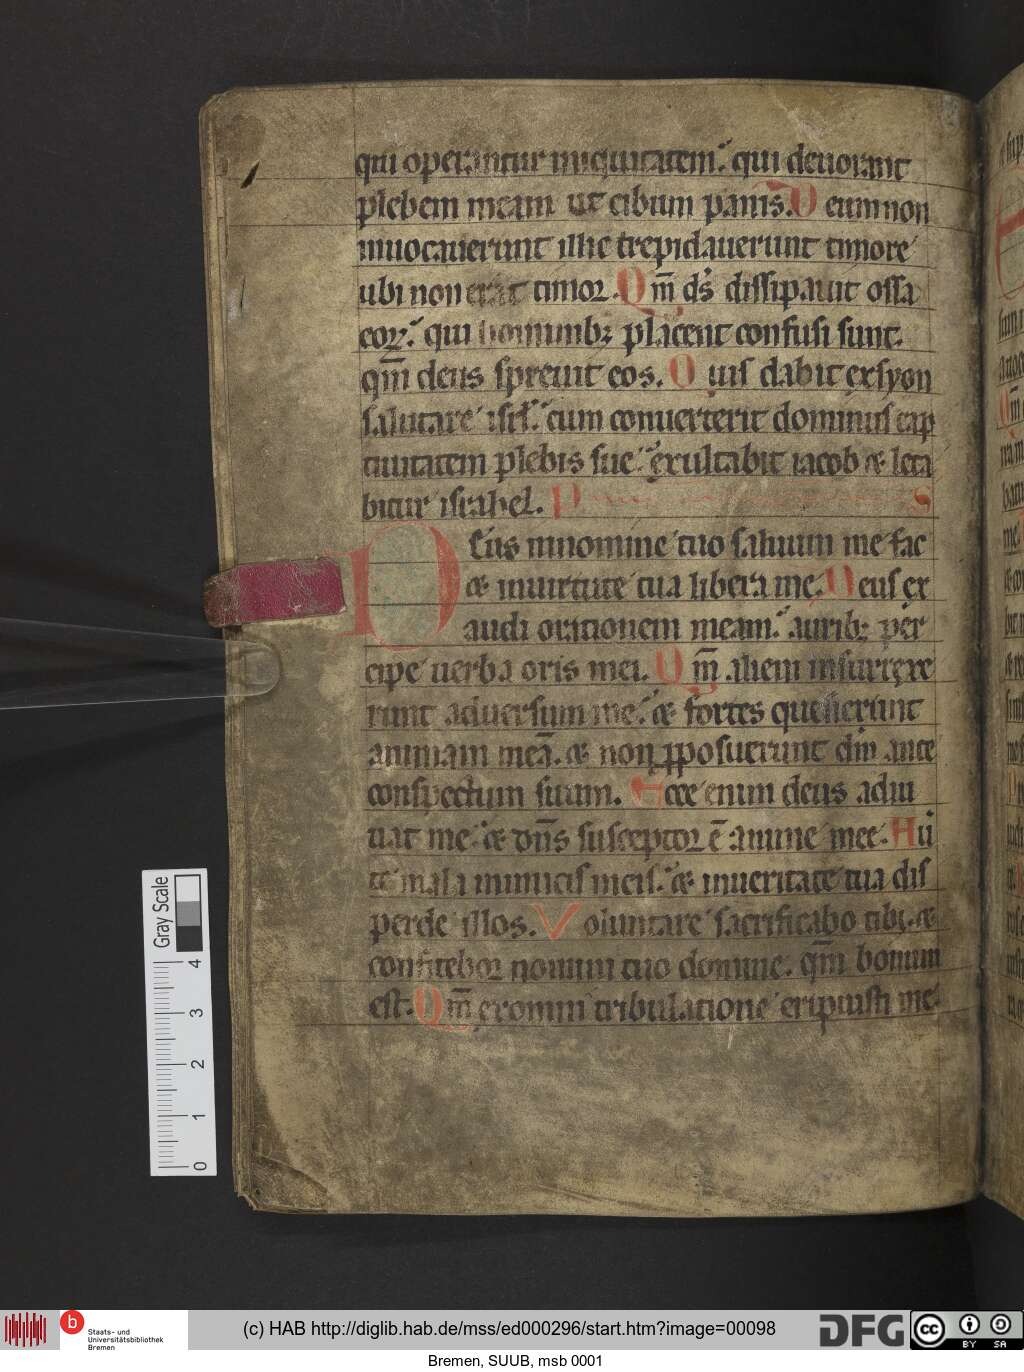 qui operantur iniquitatem. qui deuorant
plebem meam ut cibum panis. D eum non
inuocauerunt illic trepidauerunt timore
ubi non erat timor. Qm̄ ds̄ dissipauit ossa
eoꝝ. qui hominibꝫ placent confusi sunt.
qm̄ deus spreuit eos. Quis dabit exsyon
salutare isrl. cum conuerterit dominus cap
tiuitatem plebis sue. exultabit iacob & leta
bitur israhel. P s
Deus innomine tuo saluum me fac
& inuirtute tua libera me. Deus ex
audi orationem meam. auribꝫ per
cipe uerba oris mei. Qm̄ alieni insurrexe
runt aduersum me. & fortes quesierunt
animam meā. & non ꝓposuerunt dm̄ ante
conspectum suum. Ecce enim deus adiu
uat me. & dn̄s susceptor ē anime mee. Auer
te mala inimicis meis. & inueritate tua dis
perde illos. Voluntarie sacrificabo tibi. &
confitebor nomini tuo domine. qm̄ bonum
est. Qm̄ exomni tribulatione eripuisti me.
Gray Scale
4
3
2
1
0
b Staats- und
Universitätsbibliothek
Bremen
(c) HAB http://diglib.hab.de/mss/ed000296/start.htm?image=00098
DFG
cc BY SA
Bremen, SUUB, msb 0001